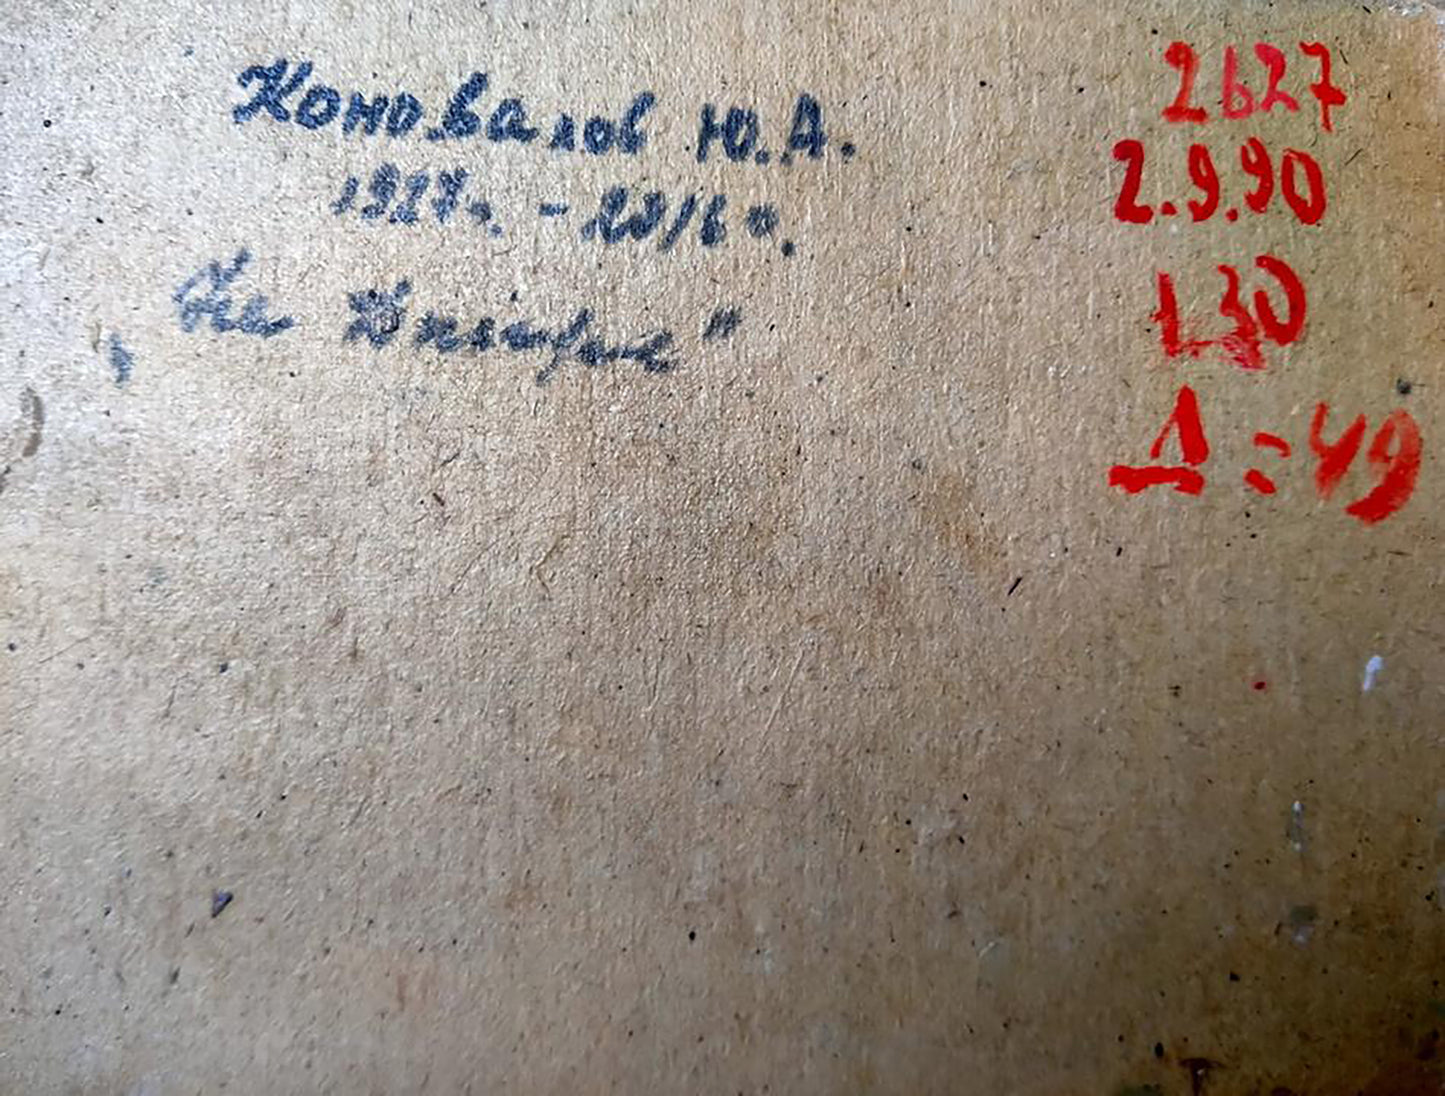 Коновалов Ю.А.
1927г. - 2016г.
„На Днепре"
2627
2.9.90
130
Δ = 49